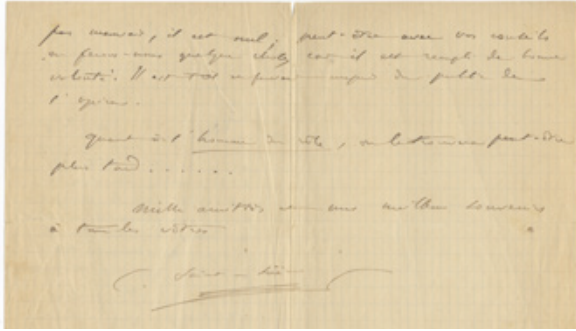 pas mauvais, il est nul. peut-être avec vos conseils
en ferons-nous quelque chose, car il est rempli de bonne
volonté. Il est très en faveur auprès du public de
l'opéra.
quant à l'homme du rôle, on le trouvera peut-être
plus tard......
Mille amitiés et mes meilleurs souvenirs
à tous les vôtres
C. Saint-Saëns